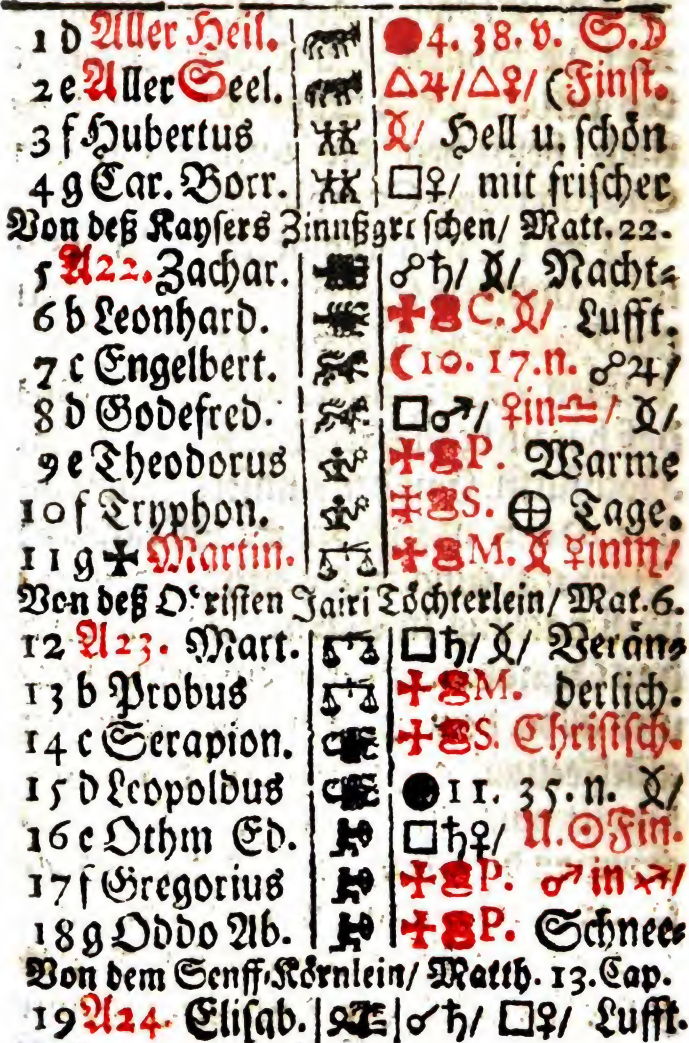 1 d Aller Heil. 4. 38. v. S.D
2 e Aller Seel. △♃/ △♀/ (Finst.
3 f Hubertus Hell u. schön
4 g Car. Borr. □♀/ mit frischer
Von deß Kaysers Zinnßgrischen/ Matt. 22.
5 A 22. Zachar. ☍♄/ Nacht-
6 b Leonhard. C. Lufft.
7 c Engelbert. ☾10. 17. n. ☍♃/
8 d Godefred. □♂/ ♀in♎/
9 e Theodorus P. Warme
10 f Tryphon. S. ⊕ Tage.
11 g ✠ Martin. M. ☿in♏/
Von deß O'risten Jairi Töchterlein/ Mat. 6.
12 A 23. Mart. □♄/ Verän-
13 b Probus M. derlich.
14 c Serapion. S. Christsch.
15 d Leopoldus ●11. 35. n.
16 e Othm Ed. □♄♀/ U.☉Fin.
17 f Gregorius P. ♂ in ♐/
18 g Oddo Ab. P. Schnee-
Von dem Senff-Körnlein/ Matth. 13. Cap.
19 A 24. Elisab. ☌♄/ □♀/ Lufft.